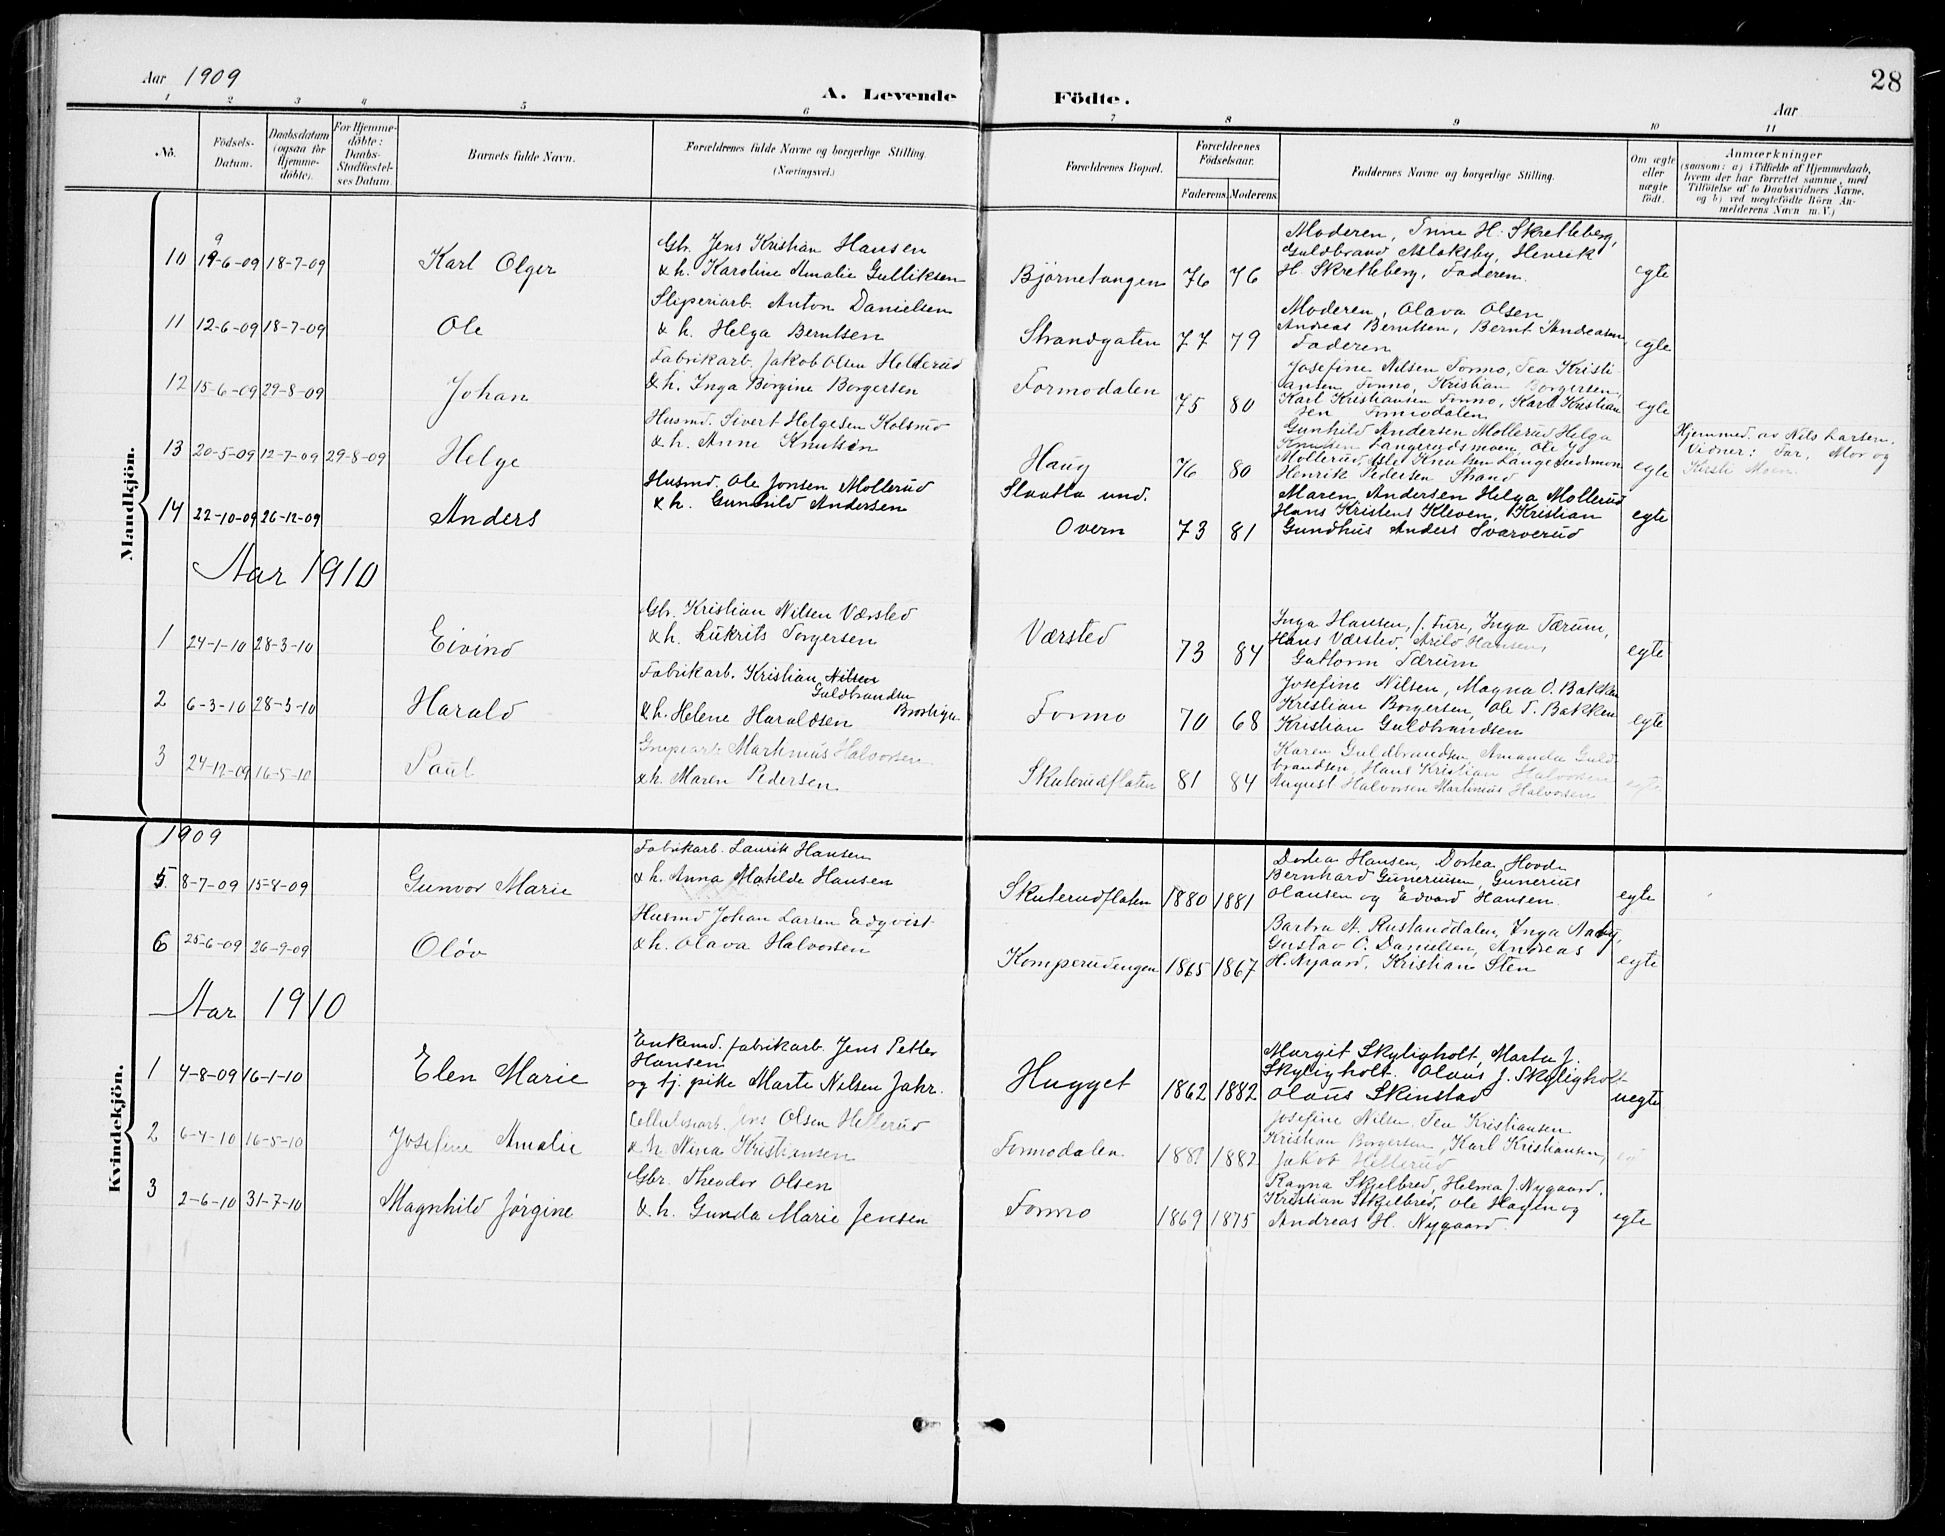 28
Aar 1909
A. Levende Födte.
Aar
1 2 3 4 5 6 7 8 9 10 11
No.
Födsels-Datum.
Daabsdatum (ogsaa for Hjemme-döbte).
For Hjemme-döbte: Daabs-Stadfæstel-ses Datum
Barnets fulde Navn.
Forældrenes fulde Navne og borgerlige Stilling. (Næringsvei.)
Forældrenes Bopæl.
Forældrenes Födselsaar.
Faderens. Moderens.
Faddernes Navne og borgerlige Stilling.
Om ægte eller uægte födt.
Anmærkninger
(saasom: a) i Tilfælde af Hjemmedaab,
hvem der har forrettet samme, med
Tilföielse af to Daabsvidners Navne,
og b) ved uægtefödte Börn An-
melderens Navn m. V.)
Mandkjön.
10 19-6-09 18-7-09 Karl Olger
9
Gbr. Jens Kristian Hansen
& h. Karoline Amalie Gulliksen
Bjørnetangen 76 76
Moderen, Inne H. Skretteberg,
Guldbrand Aslaksby, Henrik
H. Skretteberg, Faderen
egte
11 12-6-09 18-7-09 Ole
Sliperiarb. Anton Danielsen
& h. Helga Berntsen
Strandgaten 77 79
Moderen, Olava Olsen
Andreas Berntsen, Bernt Andeasen
Faderen
egte
12 15-6-09 29-8-09 Johan
Fabrikarb. Jakob Olsen Helderud
& h. Inga Børgine Borgersen
Formodalen 75 80
Josefine Nilsen Formo, Tea Kristi
ansen, Formo, Kristian Borgersen,
Karl Kristiansen Formo, Karl Kristian
sen Formodalen
egte
13 20-5-09 12-7-09 29-8-09 Helge
Husmd. Sivert Helgesen Kolsrud
& h. Anne Knutsen
Haug 76 80
Gunhild Andersen Mollerud Helga
Knutsen Langerudsmoen, Ole Js
Mollerud, Knutsen Langerudsmoen
Henrik Pedersen Strand
egte
Hjemmed. av Nils Larsen.
Vidner: Far, Mor og
Kirsti Moen.
14 22-10-09 26-12-09 Anders
Husmd. Ole Jonsen Mollerud
& h. Gunhild Andersen
Slaatta und.
Overn 73 81
Maren Andersen Helga Mollerud
Hans Kristens Kleven, Kristian
Gundhus Anders Svarverud
egte
Aar 1910
1 24-1-10 28-3-10 Eivind
Gbr. Kristian Nilsen Værsted
& h. Lukrits Torgersen
Værsted 73 84
Inga Hansen, f. Fure, Inga Tærum,
Hans Værsted, Arild Hansen,
Guttorm Tærum
egte
2 6-3-10 28-3-10 Harald
Fabrikarb. Kristian Nilsen
Guldbrandsen
& h. Helene Haraldsen
Formo 70 68
Josefine Nilsen, Magna O. Bakken
Kristian Borgersen, Ole T. Bakken
Kristian Guldbrandsen
egte
3 24-12-09 16-5-10 Paul
Grupearb. Martinius Halvorsen
& h. Maren Pedersen
Skuterudflaten 81 84
Karen Guldbrandsen Amanda Guld
brandsen, Hans Kristian Halvorsen
August Halvorsen Martinius Halvorsen
egte
Kvindekjön.
1909
5. 8-7-09 15-8-09 Gunvor Marie
Fabrikarb. Laurik Hansen
& h. Anna Matilde Hansen
Skuterudflaten 1880 1881
Dortea Hansen, Dortea Hovde
Bernhard Guneriusen, Gunerius
Olausen og Edvard Hansen.
egte
6 25-6-09 26-9-09 Oløv
Husmd Johan Larsen Edqvist
& h. Olava Halvorsen
Komperudengen 1865 1867
Barbra A. Rustanddalen, Inga Aaby,
Gustav O. Danielsen, Andreas
H. Nygaard, Kristian Sten
egte
Aar 1910
1 4-8-09 16-1-10 Elen Marie
Enkemd. fabrikarb. Jens Petter
Hansen
og tj. pike Marte Nilsen Jahr.
Hugget 1862 1882
Margit Skyligholt, Marta J.
Skyligholt. Olaus J. Skyligholt
Olaus Skinstad
uegte
2 6-4-10 16-5-10 Josefine Amalie
Cellulosearb. Jens Olsen Hellerud
& h. Nina Kristiansen
Formodalen 1882
Josefine Nilsen, Tea Kristiansen
Kristian Borgersen, Karl Kristiansen,
Jakob Hellerud
3 2-6-10 31-7-10 Magnhild Jørgine
Gbr. Theodor Olsen
& h. Gunda Marie Jensen
Formo 1869 1875
Ragna Skjelbred, Helma J. Nygaard,
Kristian Skjelbred, Ole Hagen og
Andreas H. Nygaard.
egte